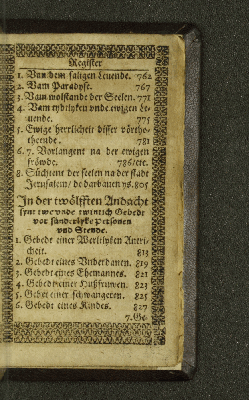 Register
1. Van dem saligen Leuende. 762
2. Vam Paradyse. 767
3. Vam wolstande der Seelen. 771
4. Vam rydtlyken vnde ewigen Le-
uende. 775
5. Ewige herrlicheit disser vörthe-
theende. 781
6. 7. Vorlangent na der ewigen
fröwde. 786. etc.
8. Süchtent der seelen na der stadt
Jerusalem/ de darbauen ys. 805
In der twölfften Andacht
synt twe vnde twintich Gebedt
vor sünderlyke Personen
vnd Stende.
1. Gebedt einer Werltlyken Auericheit. 813
2. Gebedt eines Vnderdanen. 819
3. Gebedt eines Ehemannes. 821
4. Gebedt einer Hußfruwen. 823
5. Gebet einer schwangeren. 825
6. Gebedt eines Kindes. 827
7. Ge-